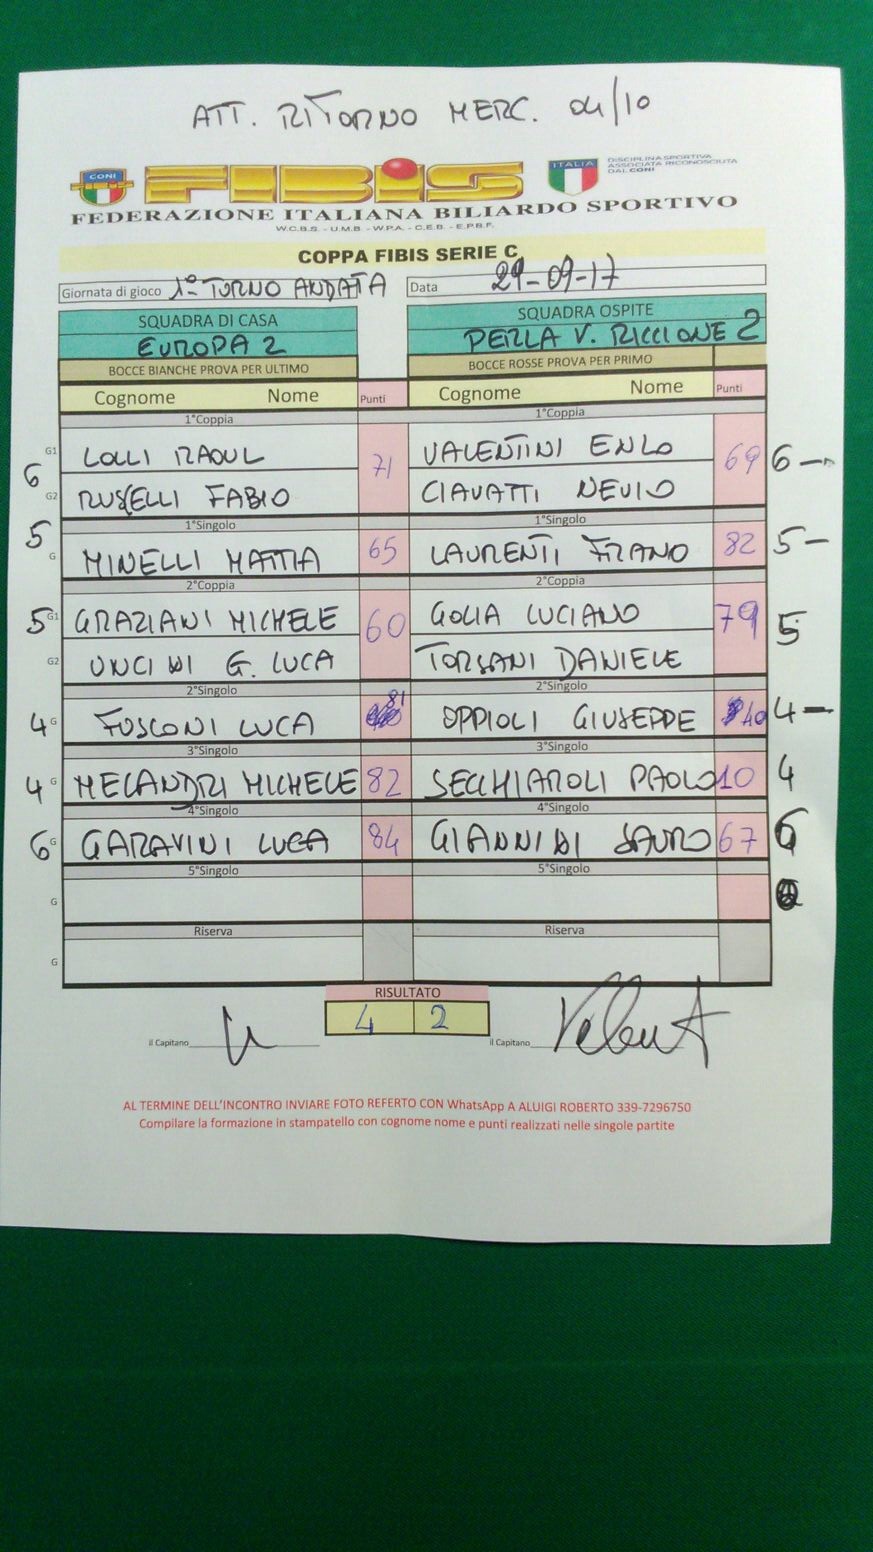 ATT. RITORNO MERC. 04/10
CONI
FIBIS
ITALIA
DISCIPLINA SPORTIVA
ASSOCIATA RICONOSCIUTA
DAL CONI
FEDERAZIONE ITALIANA BILIARDO SPORTIVO
W.C.B.S. - U.M.B. - W.P.A. - C.E.B. - E.P.B.F.
COPPA FIBIS SERIE C
Giornata di gioco 1° TURNO ANDATA Data 29-09-17
SQUADRA DI CASA SQUADRA OSPITE
EUROPA 2 PERLA V. RICCIONE 2
BOCCE BIANCHE PROVA PER ULTIMO BOCCE ROSSE PROVA PER PRIMO
Cognome Nome Punti Cognome Nome Punti
1°Coppia 1°Coppia
6 G1 LOLLI RAOUL 71 VALENTINI ENZO 69 6 -
G2 RUSCELLI FABIO CIAVATTI NEVIO
1°Singolo 1°Singolo
5 G MINELLI MATTIA 65 LAURENTI FRANO 82 5 -
2°Coppia 2°Coppia
5 G1 GRAZIANI MICHELE 60 GOLIA LUCIANO 79 5
G2 UNCINI G. LUCA TORSANI DANIELE
2°Singolo 2°Singolo
4 G FUSCONI LUCA 81 OPPIOLI GIUSEPPE 40 4 -
3°Singolo 3°Singolo
4 G MELANDRI MICHELE 82 SECCHIAROLI PAOLO 10 4
4°Singolo 4°Singolo
6 G GARAVINI LUCA 84 GIANNINI SAURO 67 6
5°Singolo 5°Singolo
G
Riserva Riserva
G
RISULTATO
4 2
il Capitano il Capitano
AL TERMINE DELL'INCONTRO INVIARE FOTO REFERTO CON WhatsApp A ALUIGI ROBERTO 339-7296750
Compilare la formazione in stampatello con cognome nome e punti realizzati nelle singole partite